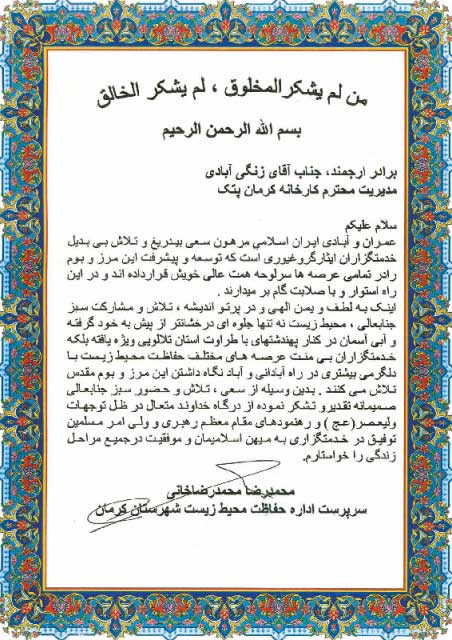 من لم یشکرالمخلوق ، لم یشکر الخالق
بسم الله الرحمن الرحیم
برادر ارجمند، جناب آقای زنگی آبادی
مدیریت محترم کارخانه کرمان پتک
سلام علیکم
عمران و آبادی ایران اسلامی مرهون سعی بیدریغ و تلاش بی بدیل
خدمتگزاران ایثارگروغیوری است که توسعه و پیشرفت این مرز و بوم
رادر تمامی عرصه ها سرلوحه همت عالی خویش قرارداده اند و در این
راه استوار و با صلابت گام بر میدارند .
اینک به لطف و یمن الهی و در پرتو اندیشه ، تلاش و مشارکت سبز
جنابعالی ، محیط زیست نه تنها جلوه ای درخشانتر از پیش به خود گرفته
و آبی آسمان در کنار پهندشتهای با طراوت استان تلالویی ویژه یافته بلکه
خدمتگزاران بی منت عرصه های مختلف حفاظت محیط زیست با
دلگرمی بیشتری در راه آبادانی و آباد نگاه داشتن این مرز و بوم مقدس
تلاش می کنند . بدین وسیله از سعی ، تلاش و حضور سبز جنابعالی
صمیمانه تقدیرو تشکر نموده از درگاه خداوند متعال در ظل توجهات
ولیعصر(عج ) و رهنمودهای مقام معظم رهبری و ولی امر مسلمین
توفیق در خدمتگزاری به میهن اسلامیمان و موفقیت درجمیع مراحل
زندگی را خواستارم.
محمدرضا محمدرضاخانی
سرپرست اداره حفاظت محیط زیست شهرستان کرمان